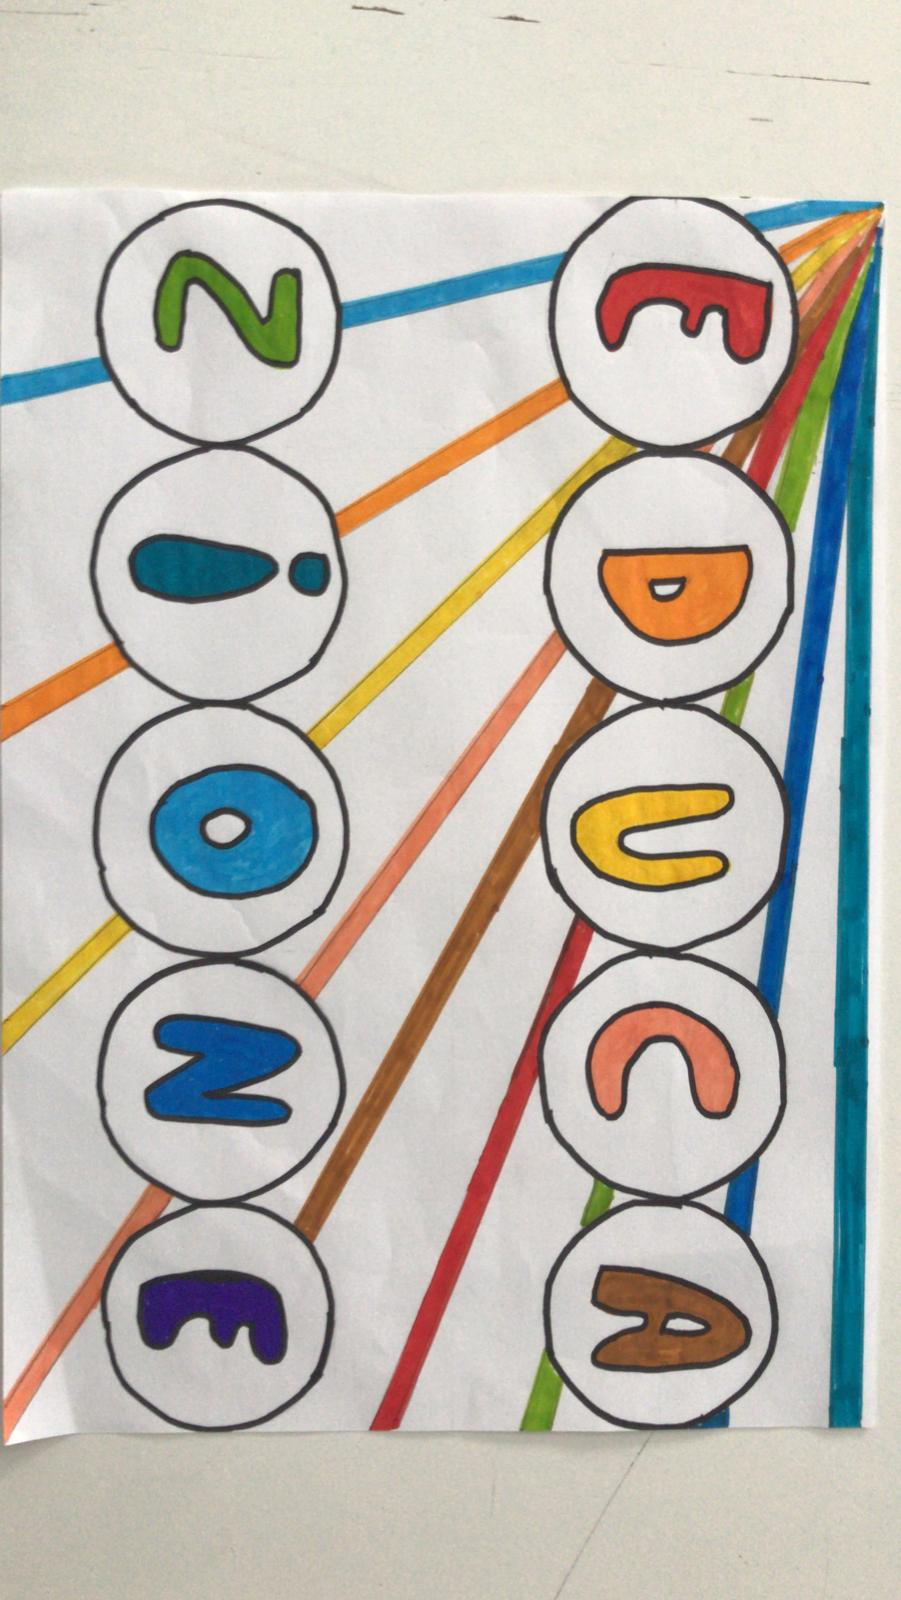 EDUCA
ZiONE